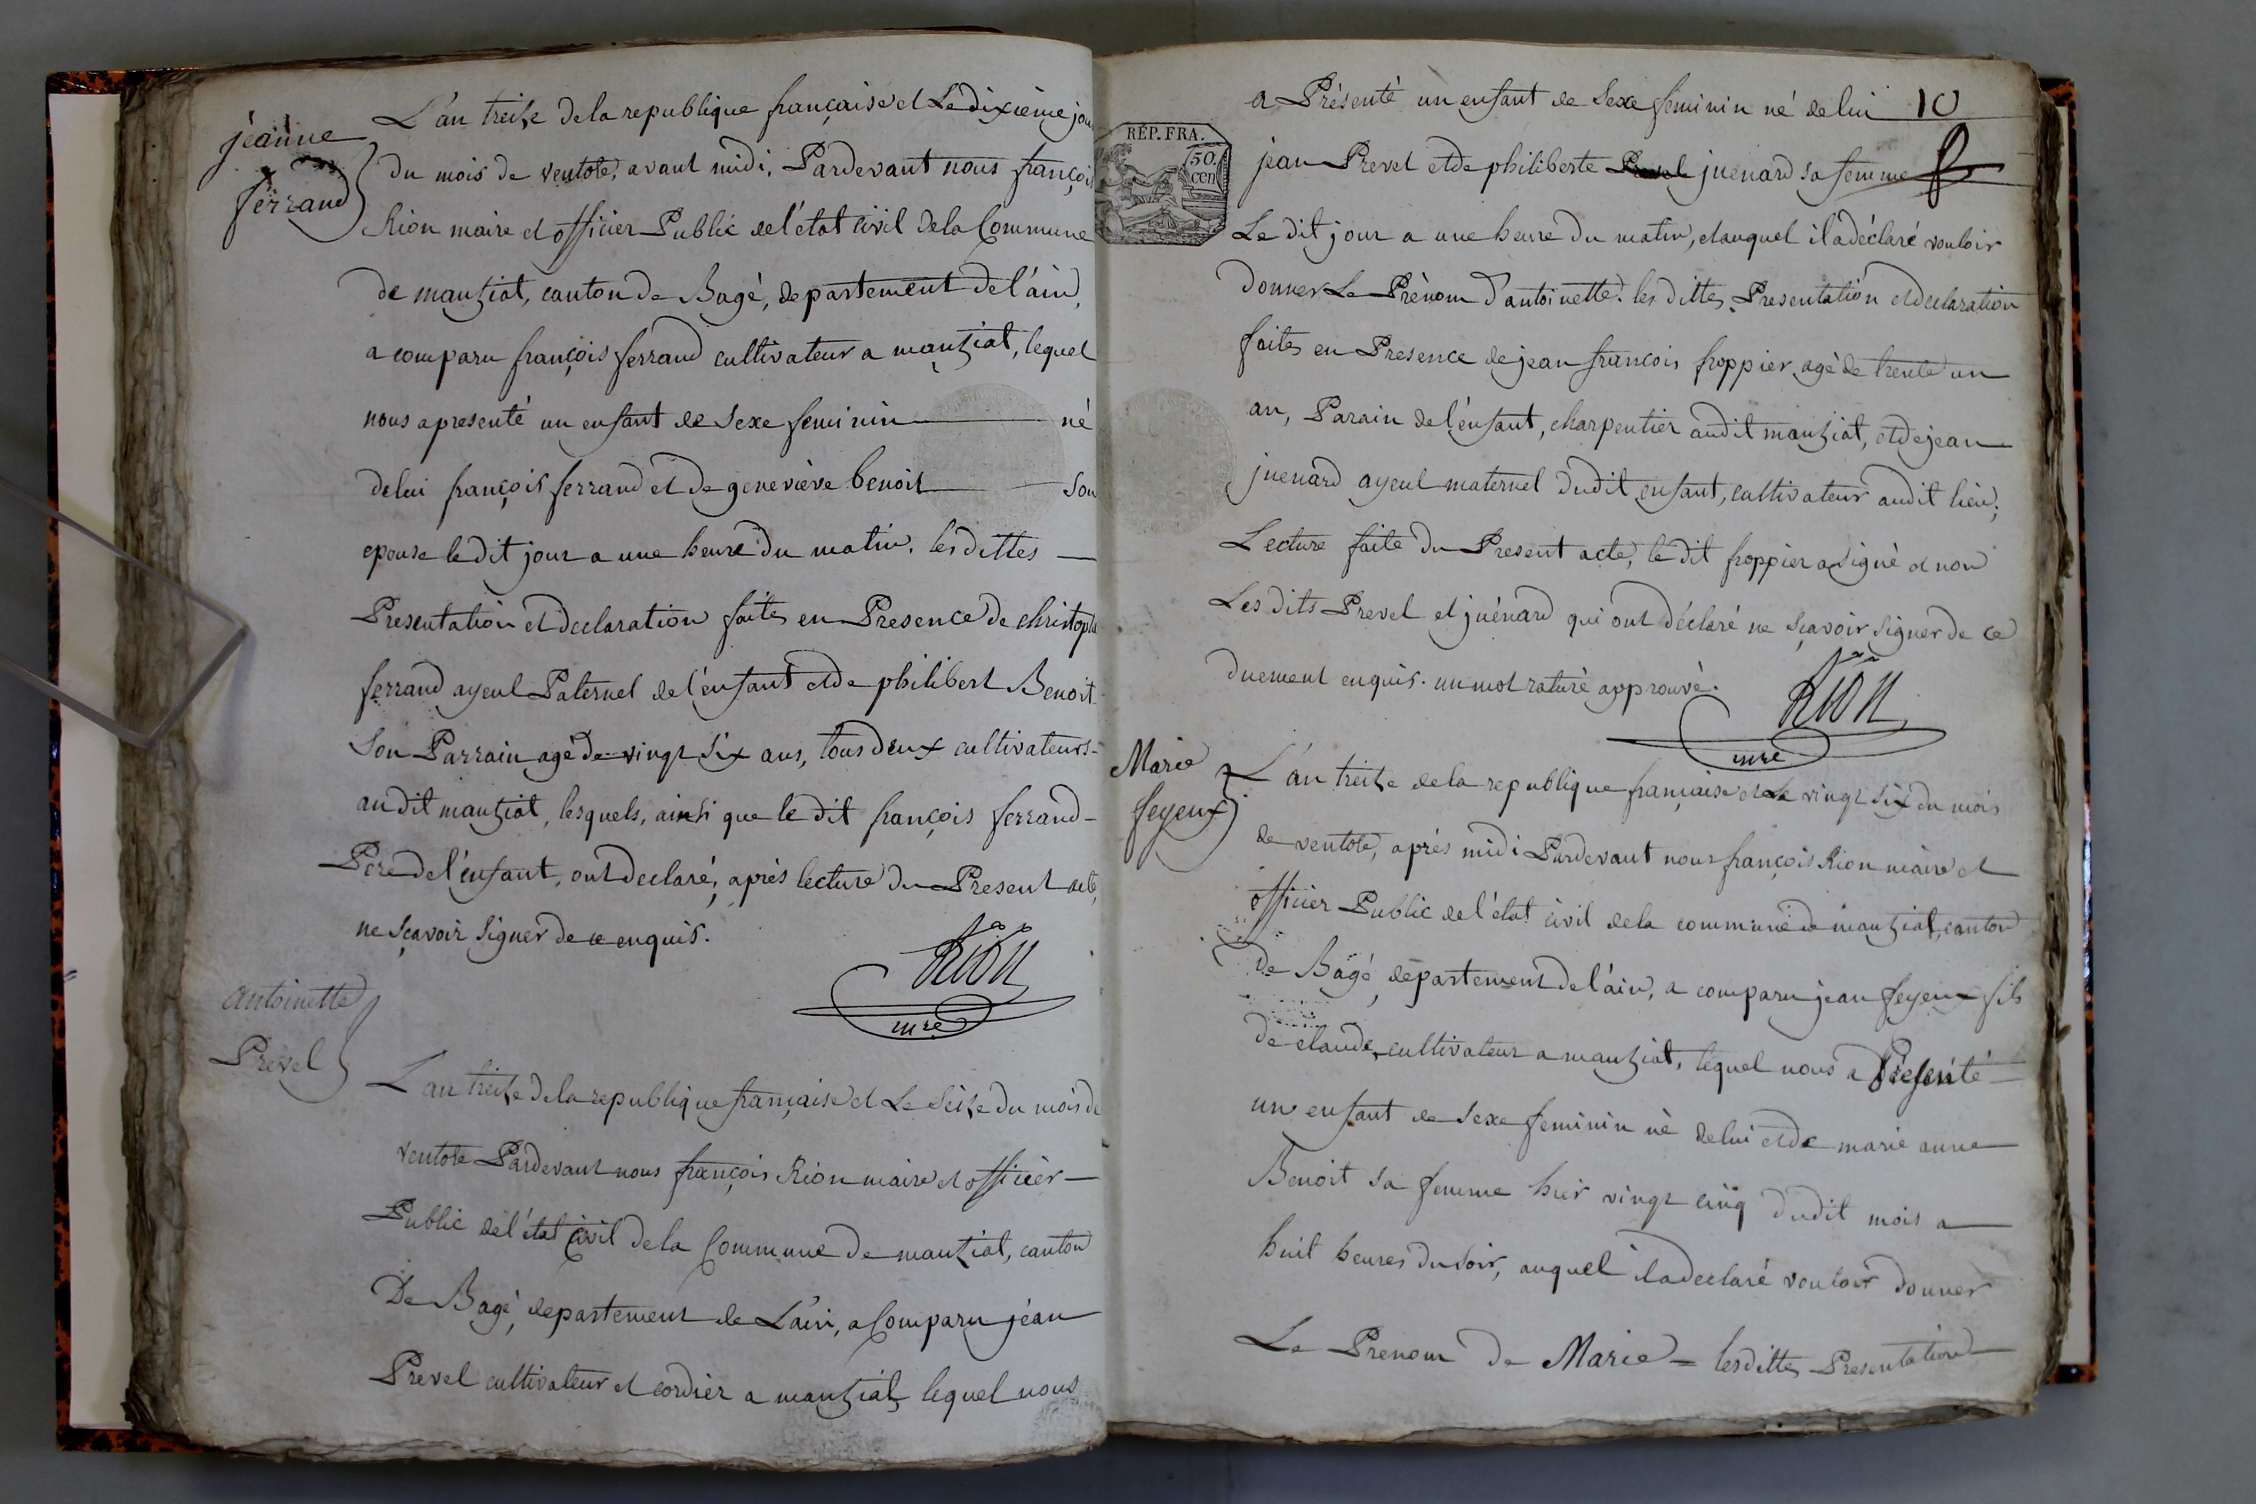 jeanne
ferrand
L'an treize de la republique française et Le dixième jour
du mois de ventose, avant midi, Pardevant nous françois
Rion maire et officier Public de l'état civil de la Commune
de manziat, canton de Bagé, departement de l'ain,
a comparu françois ferrand cultivateur a manziat, lequel
nous a presenté un enfant de sexe feminin né
de lui françois ferrand et de geneviève benoit son
epouse le dit jour a une heure du matin. les dittes
Presentation et declaration faites en Presence de christophe
ferrand ayeul Paternel de l'enfant et de philibert Benoit
son Parrain agé de vingt six ans, tous deux cultivateurs
au dit manziat, lesquels, ainsi que le dit françois ferrand
Pere de l'enfant, ont declaré, après lecture du Present acte,
ne sçavoir signer de ce enquis.
Rion
mre
antoinette
Prevel
L'an treize de la republique française et Le seize du mois de
ventose Pardevant nous françois Rion maire et officier
Public de l'état civil de la Commune de manziat, canton
De Bagé, departement de L'ain, a Comparu jean
Prevel cultivateur et cordier a manziat lequel nous
10
a Présenté un enfant de sexe feminin né de lui
RÉP. FRA.
50
cen
jean Prevel et de philiberte Prevel juenard sa femme
Le dit jour a une heure du matin, et auquel il a déclaré vouloir
donner Le Prénom d'antoinette. les dittes Presentation et declaration
faites en Presence de jean françois froppier agé de trente un
an, Parain de l'enfant, charpentier au dit manziat, et de jean
juenard ayeul maternel du dit enfant, cultivateur au dit lieu;
Lecture faite du Present acte, le dit froppier a signé et non
Les dits Prevel et juénard qui ont déclaré ne sçavoir signer de ce
duement enquis. un mot raturé approuvé.
Rion
mre
Marie
feyeux
L'an treize de la republique française et le vingt six du mois
de ventose, après midi Pardevant nous françois Rion maire et
officier Public de l'état civil de la commune de manziat, canton
de Bagé, département de l'ain, a comparu jean feyeux fils
de claude, cultivateur a manziat, lequel nous a Présenté
un enfant de sexe feminin né de lui et de marie anne
Benoit sa femme hier vingt cinq du dit mois a
huit heures du soir, auquel il a declaré vouloir donner
Le Prenom de Marie = les dittes Presentation